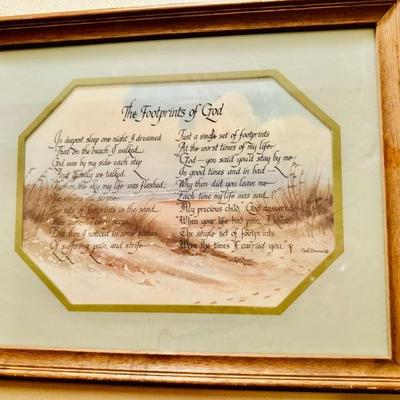 The Footprints of God
In deepest sleep one night I dreamed
That on the beach I walked
God was by my side each step
And silently we talked.
Then on the sky my life was flashed;
The visions all serene
Two sets of footprints in the sand
But then I noticed in some scenes
Of suffering, pain, and strife
Just a single set of footprints
At the worst times of my life.
"God—you said you'd stay by me
In good times and in bad
Why then did you leave me
Each time my life was sad?"
"My precious child, God answered
"When your life had pain,
The single set of footprints
Were the times I carried you."